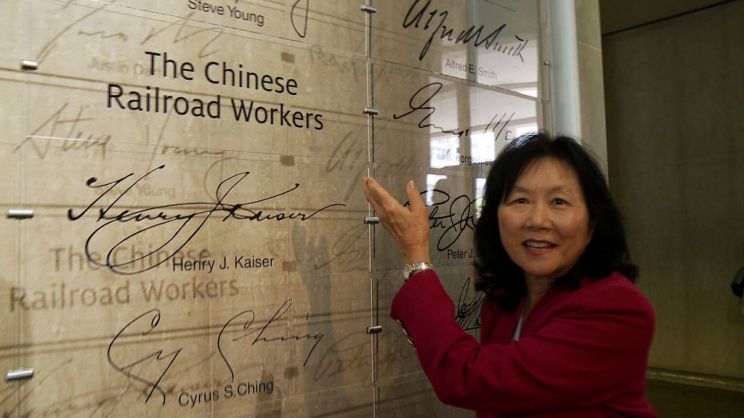 Steve Young
The Chinese
Railroad Workers
Henry J. Kaiser
Henry J. Kaiser
Cy Ching
Cyrus S. Ching
Alfred E. Smith
Alfred E. Smith
Peter J.
Steve Young
Young
The Chinese
Railroad Workers